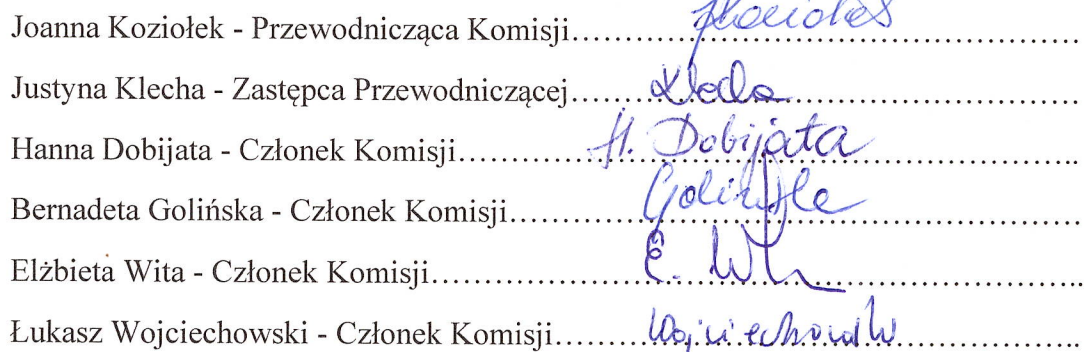 Joanna Koziołek - Przewodnicząca Komisji.................... JKoziołek
Justyna Klecha - Zastępca Przewodniczącej.................... Klecha
Hanna Dobijata - Członek Komisji.................... H. Dobijata
Bernadeta Golińska - Członek Komisji.................... Golińska
Elżbieta Wita - Członek Komisji.................... E. Wita
Łukasz Wojciechowski - Członek Komisji.................... Wojciechowski